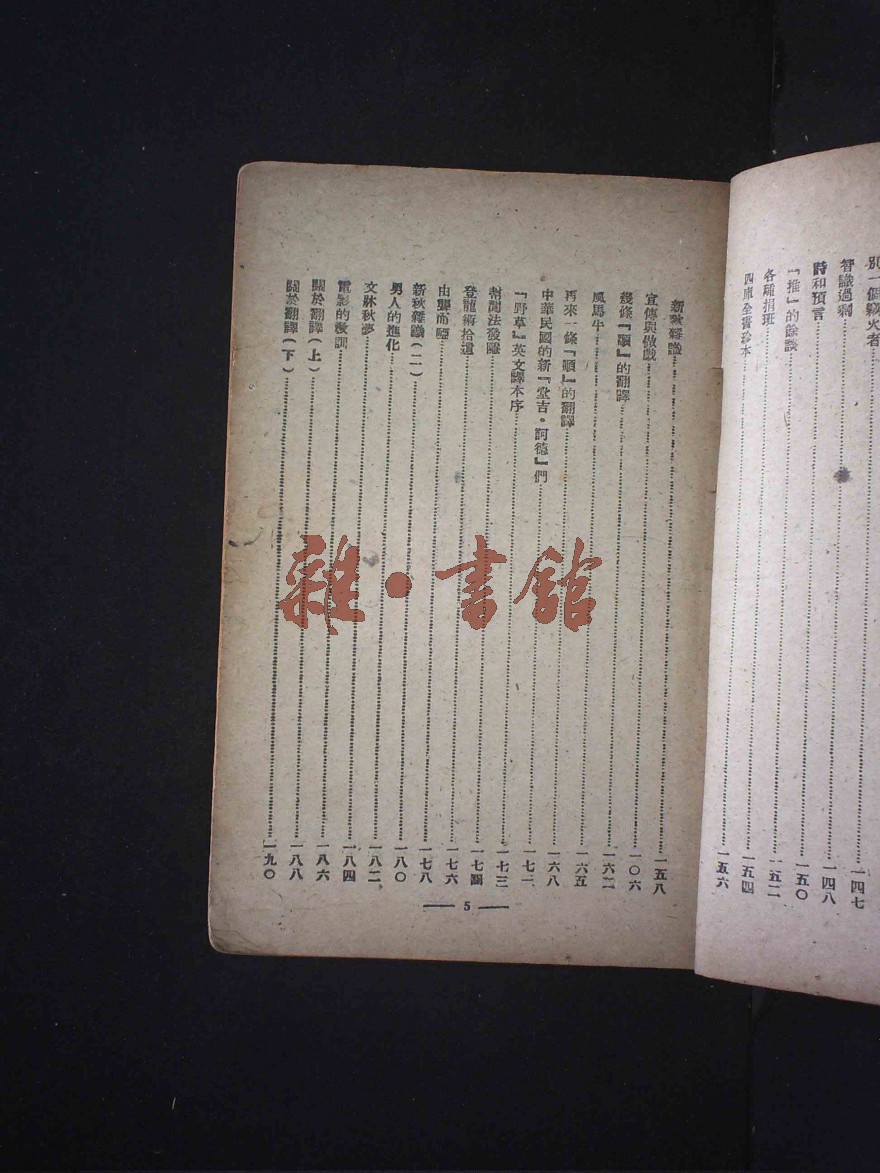 別一個竊火者……一四七
智識過剩……一四八
時和預言……一五〇
『推』的餘談……一五二
各種捐班……一五四
四庫全書珍本……一五六
新秋雜識……一五八
宣傳與做戲……一〇六
幾條『順』的翻譯……一六二
風馬牛……一六五
再來一條『順』的翻譯……一六八
中華民國的新『堂吉·訶德』們……一七一
『野草』英文譯本序……一七三
幫閒法發隱……一七四
登龍術拾遺……一七六
由聾而啞……一七八
新秋雜識(二)……一八〇
男人的進化……一八二
文牀秋夢……一八四
電影的教訓……一八六
關於翻譯(上)……一八八
關於翻譯(下)……一九〇
— 5 —
雜·書館